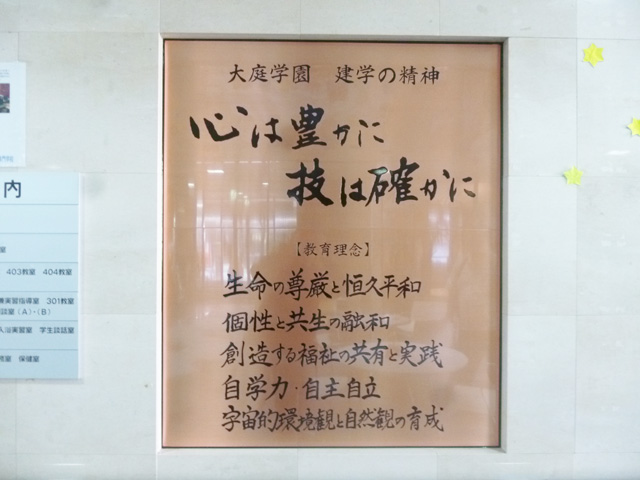 大庭学園 建学の精神
心は豊かに
技は確かに
【教育理念】
生命の尊厳と恒久平和
個性と共生の融和
創造する福祉の共有と実践
自学力・自主自立
宇宙的環境観と自然観の育成
内
室
403教室 404教室
実習指導室 301教室
談室(A)・(B)
入浴実習室 学生談話室
室 保健室